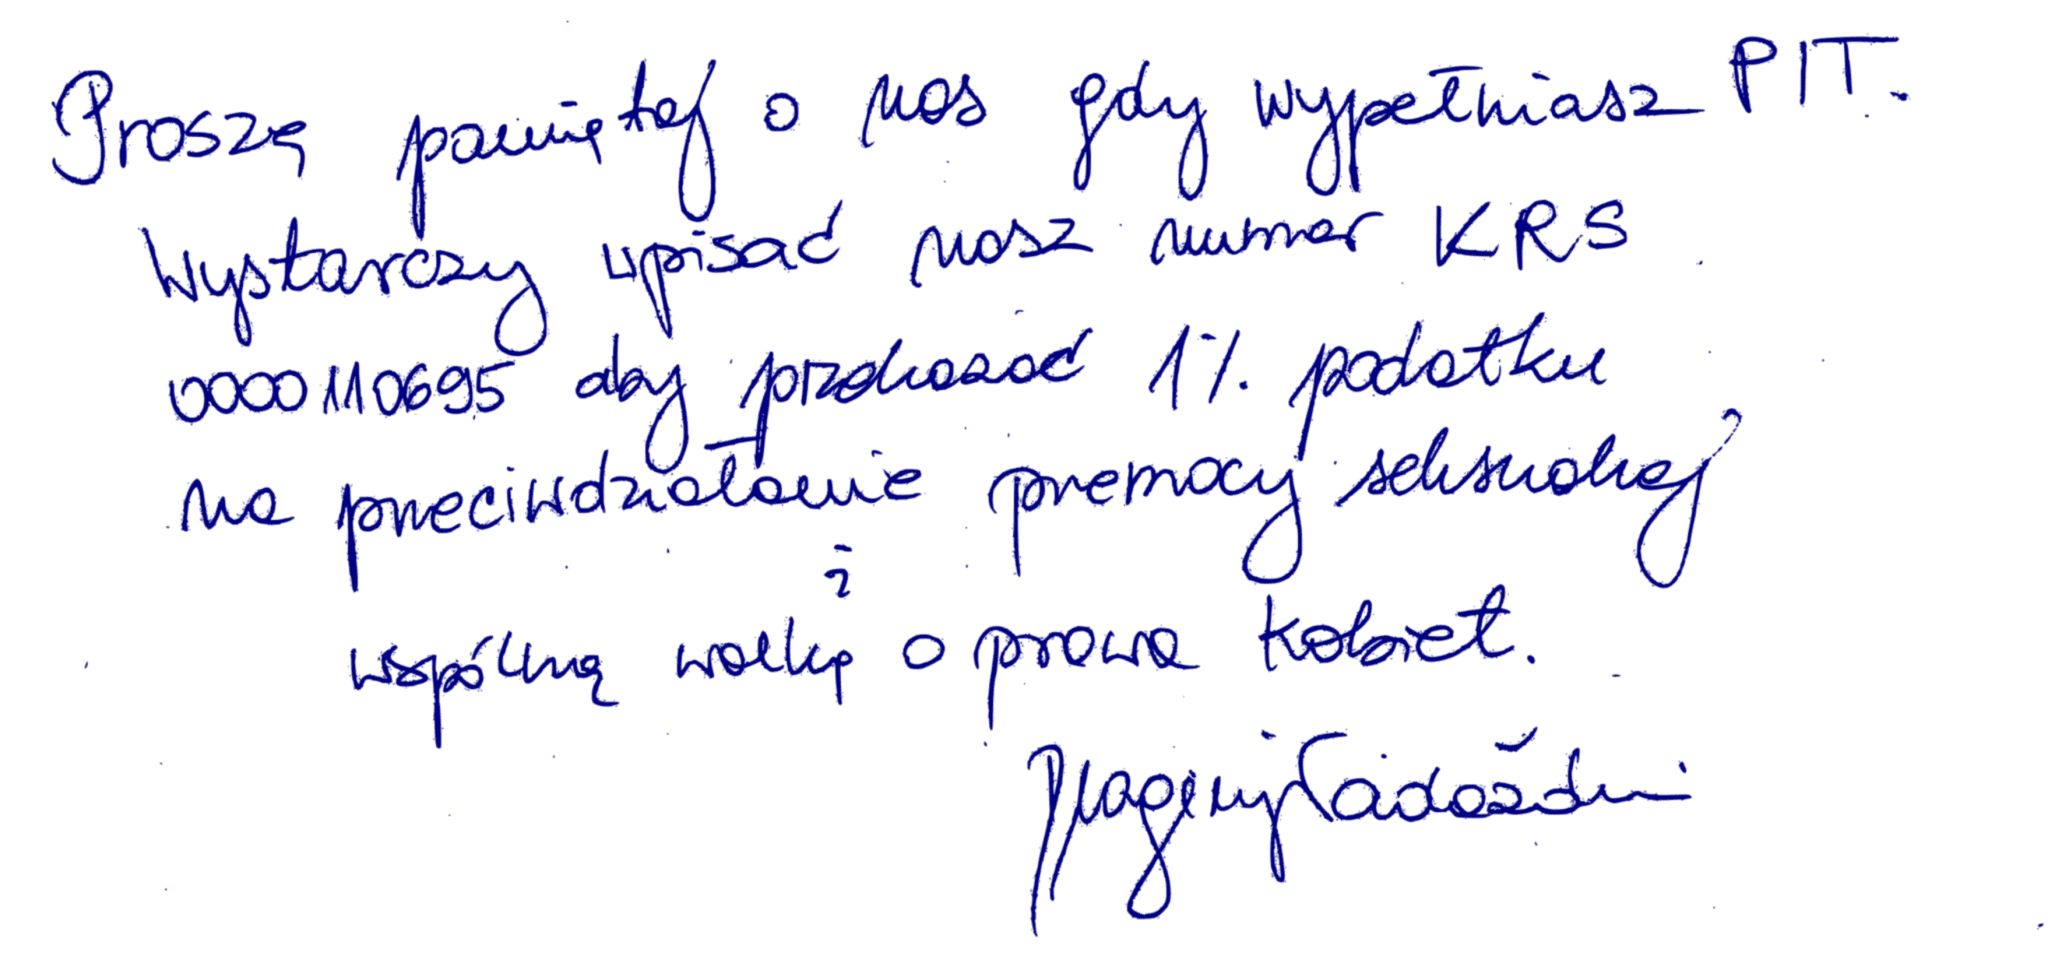 Proszę pamiętaj o nas gdy wypełniasz PIT.
Wystarczy wpisać nasz numer KRS
0000110695 aby przekazać 1% podatku
na przeciwdziałanie przemocy seksualnej
i
wspólną walkę o prawa kobiet.